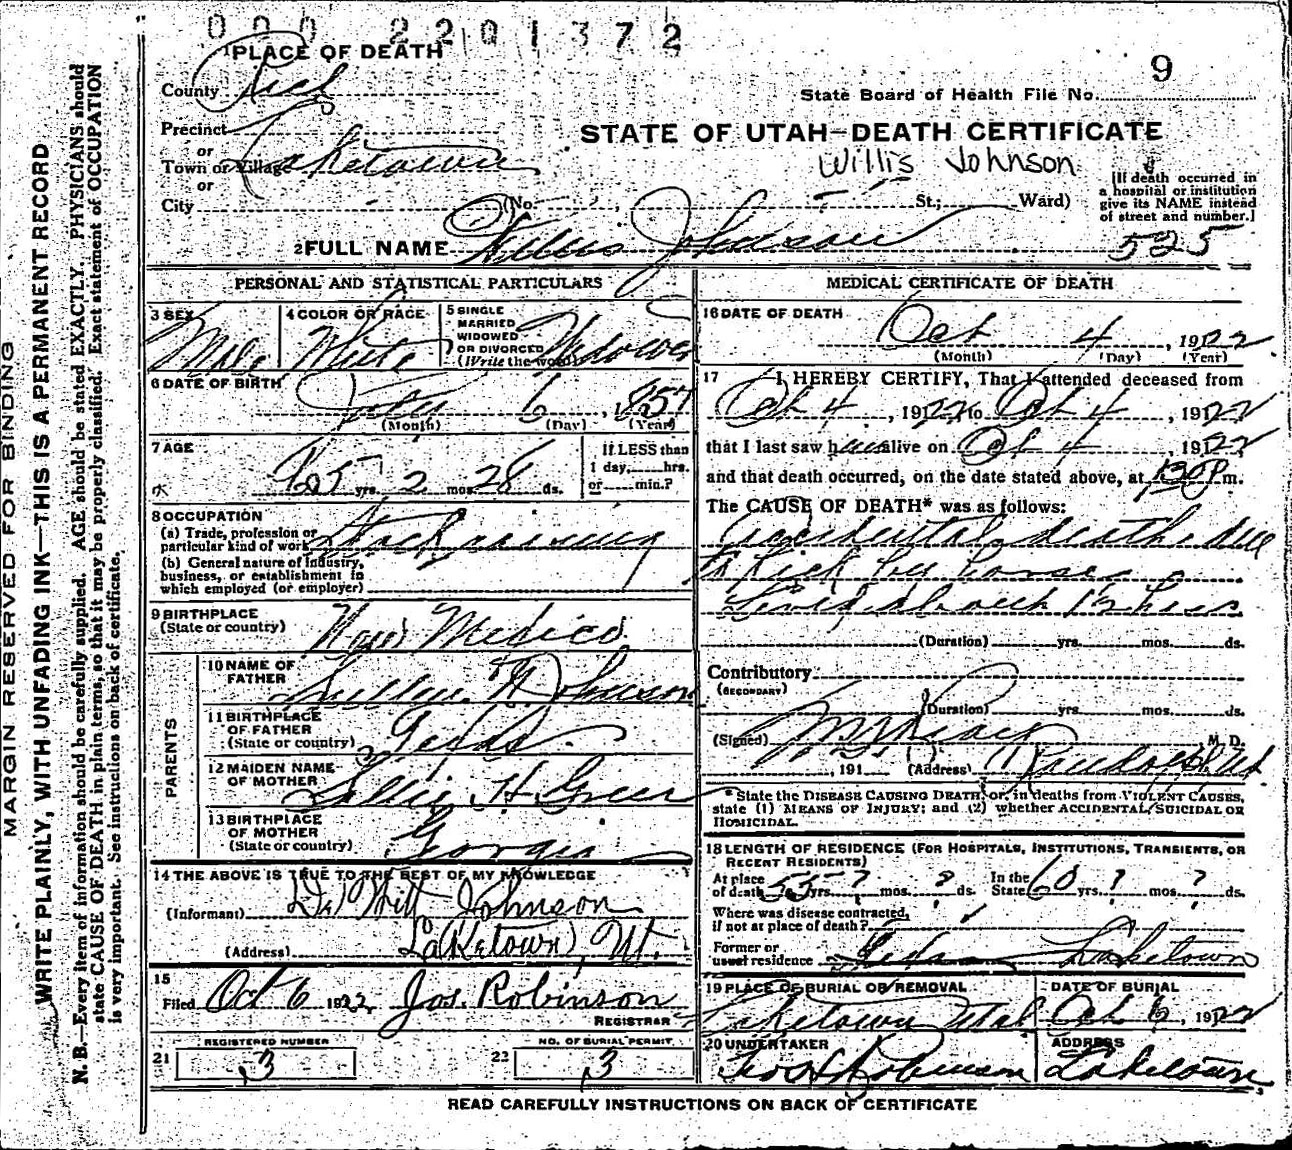 000 2201372
1 PLACE OF DEATH
9
County Rich
State Board of Health File No.
Precinct
or
STATE OF UTAH—DEATH CERTIFICATE
Town or Village Laketown
Willis Johnson
or
City (No. St.; Ward)
[If death occurred in
a hospital or institution
give its NAME instead
of street and number.]
2 FULL NAME Willis Johnson
525
PERSONAL AND STATISTICAL PARTICULARS
3 SEX Male
4 COLOR OR RACE White
5 SINGLE
MARRIED
WIDOWED
OR DIVORCED
(Write the word) Widower
6 DATE OF BIRTH 6, 1857
(Month) (Day) (Year)
7 AGE 65 yrs. 2 mos. 28 ds.
If LESS than
1 day, hrs.
or min.?
8 OCCUPATION
(a) Trade, profession or
particular kind of work Stock raising
(b) General nature of Industry,
business, or establishment in
which employed (or employer)
9 BIRTHPLACE
(State or country) New Mexico
PARENTS
10 NAME OF
FATHER Johnson
11 BIRTHPLACE
OF FATHER
(State or country)
12 MAIDEN NAME
OF MOTHER H Green
13 BIRTHPLACE
OF MOTHER
(State or country) Georgia
14 THE ABOVE IS TRUE TO THE BEST OF MY KNOWLEDGE
(Informant) De Witt Johnson
(Address) Laketown, Ut.
15
Filed Oct 6 1922 Jos. Robinson
REGISTRAR
REGISTERED NUMBER
21 3
NO. OF BURIAL PERMIT
22 3
MEDICAL CERTIFICATE OF DEATH
16 DATE OF DEATH
Oct 4, 1922
(Month) (Day) (Year)
17 I HEREBY CERTIFY, That I attended deceased from
Oct 4, 1922 to Oct 4, 1922
that I last saw him alive on Oct 4, 1922
and that death occurred, on the date stated above, at 130 P m.
The CAUSE OF DEATH* was as follows:
accidental death, due
to kick by horse
Lived about 12 hrs
(Duration) yrs. mos. ds.
Contributory
(SECONDARY)
(Duration) yrs. mos. ds.
(Signed) M. D.
, 191 (Address) Randolph Ut
* State the DISEASE CAUSING DEATH, or, in deaths from VIOLENT CAUSES,
state (1) MEANS OF INJURY; and (2) whether ACCIDENTAL, SUICIDAL OR
HOMICIDAL.
18 LENGTH OF RESIDENCE (FOR HOSPITALS, INSTITUTIONS, TRANSIENTS, OR
RECENT RESIDENTS)
At place
of death 55 yrs. ? mos. ? ds.
In the
State 60 yrs. ? mos. ? ds.
Where was disease contracted,
if not at place of death?
Former or
usual residence Laketown
19 PLACE OF BURIAL OR REMOVAL
Laketown Utah
DATE OF BURIAL
Oct 6, 1922
20 UNDERTAKER
Robinson
ADDRESS
Laketown
READ CAREFULLY INSTRUCTIONS ON BACK OF CERTIFICATE
MARGIN RESERVED FOR BINDING
WRITE PLAINLY, WITH UNFADING INK—THIS IS A PERMANENT RECORD
N. B.—Every item of information should be carefully supplied. AGE should be stated EXACTLY. PHYSICIANS should
state CAUSE OF DEATH in plain terms, so that it may be properly classified. Exact statement of OCCUPATION
is very important. See instructions on back of certificate.